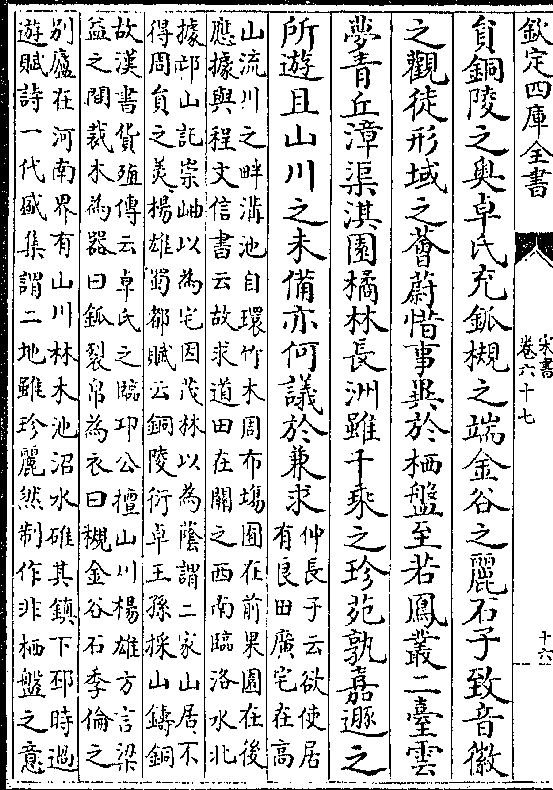 欽定四庫全書
宋書
卷六十七
十六
貟銅陵之奥卓氏充釽槻之端金谷之麗石子致音徽
之觀徒形域之薈蔚惜事異於栖盤至若鳳叢二臺雲
夢青丘漳渠淇園橘林長洲雖千乘之珍苑孰嘉遯之
所遊且山川之未備亦何議於兼求
仲長子云欲使居
有良田廣宅在高
山流川之畔溝池自環竹木周布塲圃在前果園在後
應據與程文信書云故求道田在關之西南臨洛水北
據邙山託崇岫以為宅因茂林以為蔭謂二家山居不
得周貟之美楊雄蜀都賦云銅陵衍卓王孫採山鑄銅
故漢書貨殖傳云卓氏之臨卭公擅山川楊雄方言梁
益之間裁木為器曰釽裂帛為衣曰槻金谷石季倫之
別廬在河南界有山川林木池沼水碓其鎮下邳時過
遊賦詩一代盛集謂二地雖珍麗然制作非栖盤之意